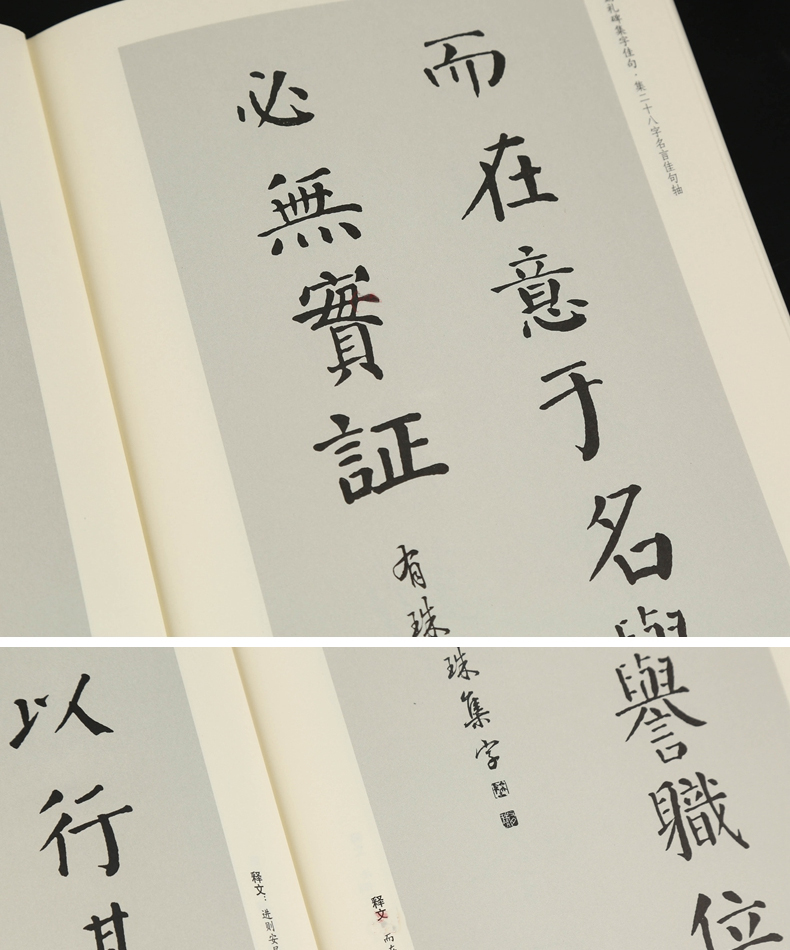 礼碑集字佳句·集二十八字名言佳句轴
而在意于名
必無實証
有珠
譽職位
珠集字
释文
而在
释文：进则安
以行其